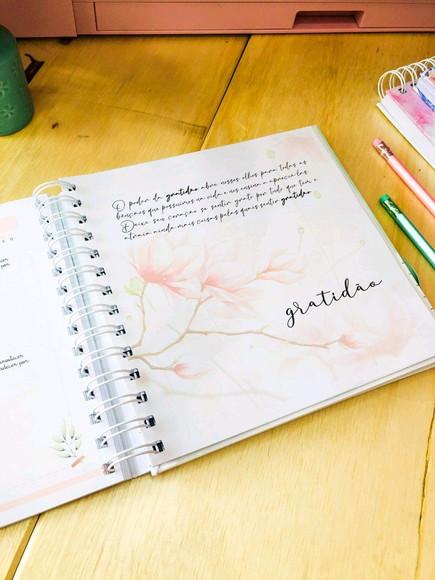 O poder da gratidão abre nossos olhos para todas as
bençãos que possuímos na vida e nos ensina a apreciá-las.
Deixe seu coração se sentir grato por tudo que tem e
atraia ainda mais coisas pelas quais sentir gratidão
gratidão